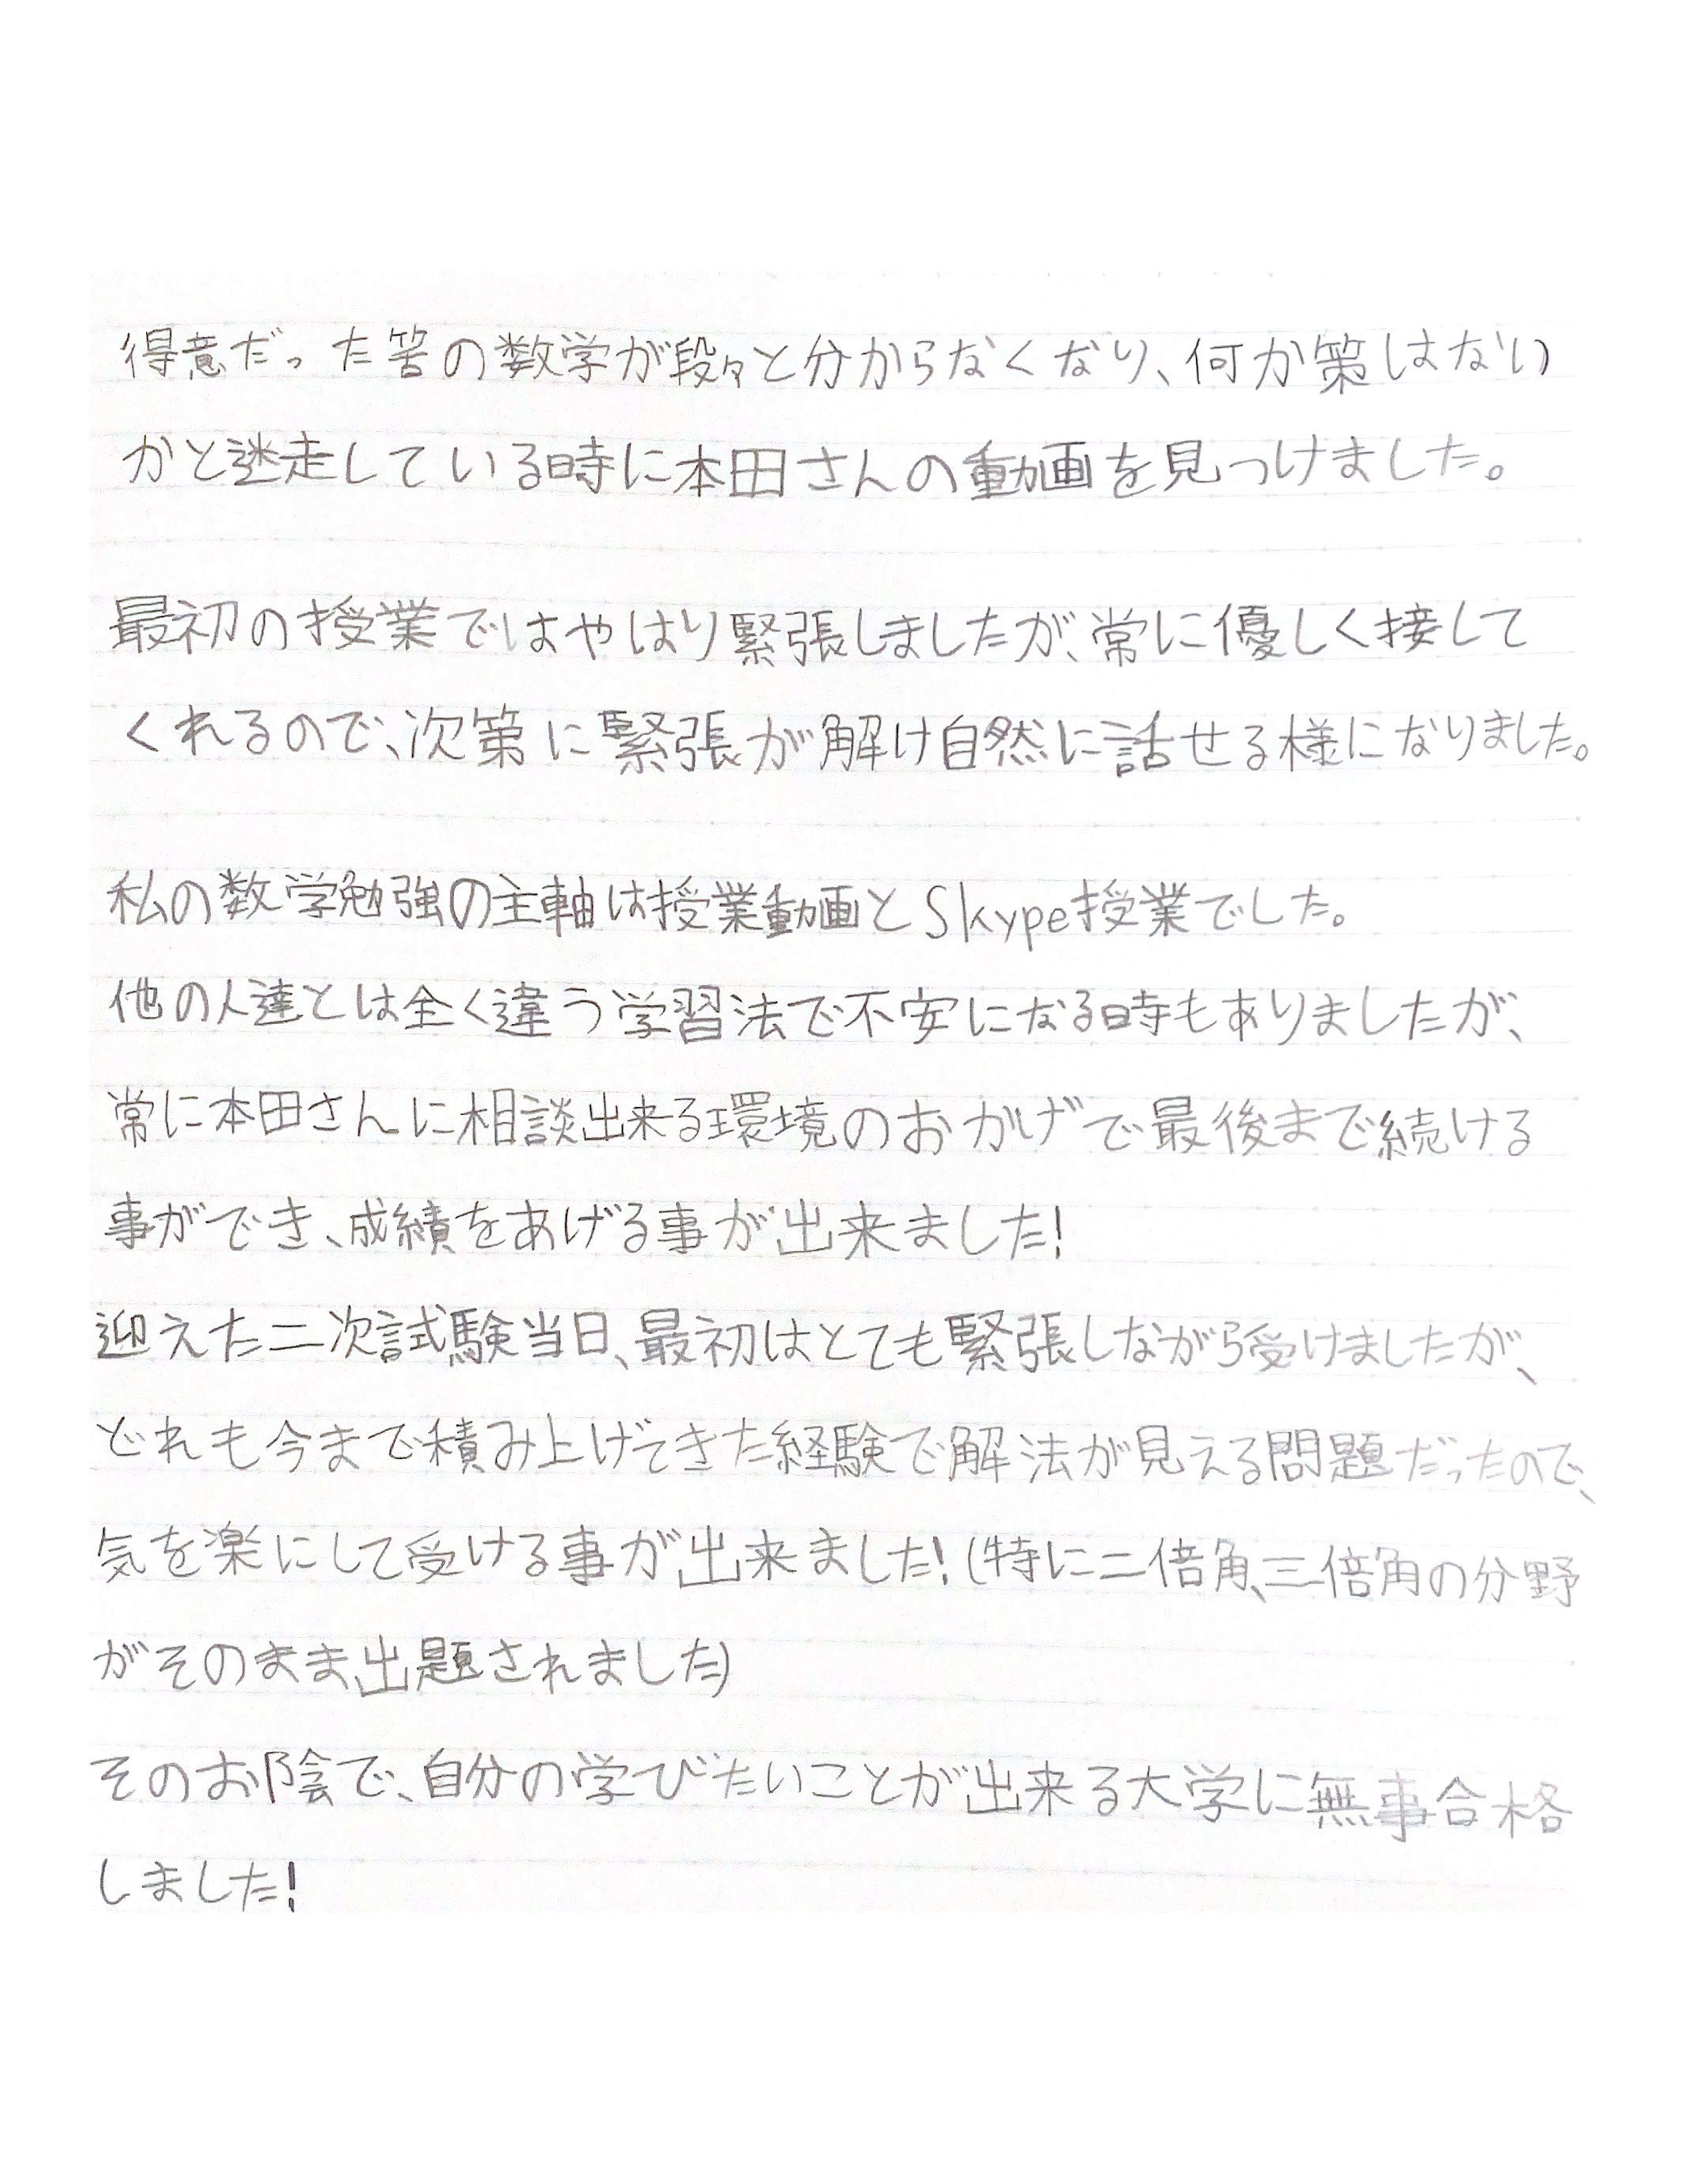 得意だった筈の数学が段々と分からなくなり、何か策はない
かと迷走している時に本田さんの動画を見つけました。
最初の授業ではやはり緊張しましたが、常に優しく接して
くれるので、次第に緊張が解け自然に話せる様になりました。
私の数学勉強の主軸は授業動画とSkype授業でした。
他の人達とは全く違う学習法で不安になる時もありましたが、
常に本田さんに相談出来る環境のおかげで最後まで続ける
事ができ、成績をあげる事が出来ました!
迎えた二次試験当日、最初はとても緊張しながら受けましたが、
どれも今まで積み上げてきた経験で解法が見える問題だったので、
気を楽にして受ける事が出来ました!(特に二倍角、三倍角の分野
がそのまま出題されました)
そのお陰で、自分の学びたいことが出来る大学に無事合格
しました!